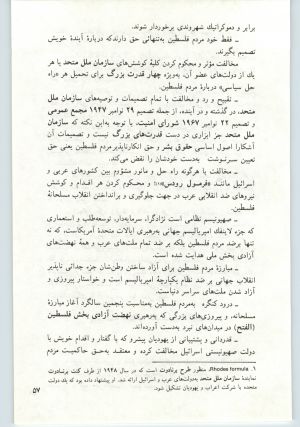 برابر و دموکراتیک شهروندی برخوردار شوند.
ـ فقط خود مردم فلسطین به‌تنهائی حق دارند که دربارهٔ آیندهٔ خویش
تصمیم بگیرند.
مخالفت مؤثر و محکوم کردن کلیهٔ کوشش‌های سازمان ملل متحد یا هر
یک از دولت‌های عضو آن، به‌ویژه چهار قدرت بزرگ برای تحمیل هر «راه
حل سیاسی» دربارهٔ مردم فلسطین.
ـ تقبیح و رد و مخالفت با تمام تصمیمات و توصیه‌های سازمان ملل
متحد، در گذشته و در آینده، از جمله تصمیم ۲۹ نوامبر ۱۹۴۷ مجمع عمومی
و تصمیم ۲۲ نوامبر ۱۹۶۷ شورای امنیت، با توجه به‌این نکته که سازمان
ملل متحد جز ابزاری در دست قدرت‌های بزرگ نیست و تصمیمات آن
آشکارا اصول اساسی حقوق بشر و حق انکارناپذیر مردم فلسطین یعنی حق
تعیین سرنوشت به‌دست خودشان را نقض می‌کند.
ـ مخالفت با هرگونه راه حل و مانور مشؤوم بین کشورهای عربی و
اسرائیل مانند «فرمول رودس»،۱ و محکوم کردن هر اقدام و کوشش
نیروهای ضد انقلابی عرب در جهت جلوگیری و برانداختن انقلاب مسلحانهٔ
فلسطین.
ـ صهیونیسم نظامی است نژادگرا، سرمایه‌دار، توسعه‌طلب و استعماری
که جزء لاینفک امپریالیسم جهانی به‌رهبری ایالات متحدهٔ آمریکاست، که نه
تنها برضد مردم فلسطین بلکه بر ضد تمام ملت‌های عرب و همهٔ نهضت‌های
آزادی بخش ملی هدایت شده است.
ـ مبارزهٔ مردم فلسطین برای آزاد ساختن وطن‌شان جزء جدائی ناپذیر
انقلاب جهانی بر ضد نظام یکپارچهٔ امپریالیسم است و خواستار پیروزی و
آزاد شدن ملت‌های سراسر دنیاست.
ـ درود کنگره به‌مردم فلسطین به‌مناسبت پنجمین سالگرد آغاز مبارزهٔ
مسلحانه، و پیروزی‌های بزرگی که به‌رهبری نهضت آزادی بخش فلسطین
(الفتح) در میدان‌های نبرد به‌دست آورده‌اند.
ـ قدردانی و پشتیبانی از یهودیان پیشرو که با گفتار و اقدام خویش با
دولت صهیونیستی اسرائیل مخالفت کرده و معتقد به‌حق حاکمیت مردم
۱. Rhodes formula، منظور طرح برنادوت است که در سال ۱۹۴۸ از طرف کنت برنادوت
نمایندهٔ سازمان ملل متحد به‌دولت‌های عرب و اسرائیل ارائه شد. او پیشنهاد داده بود که یک دولت
متحده با شرکت اعراب و یهودیان تشکیل شود.
۵۷